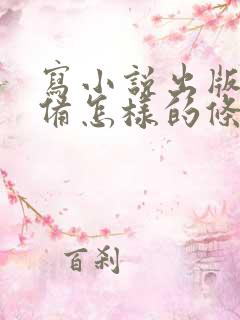 寫小說出版
備怎樣的條
百剎